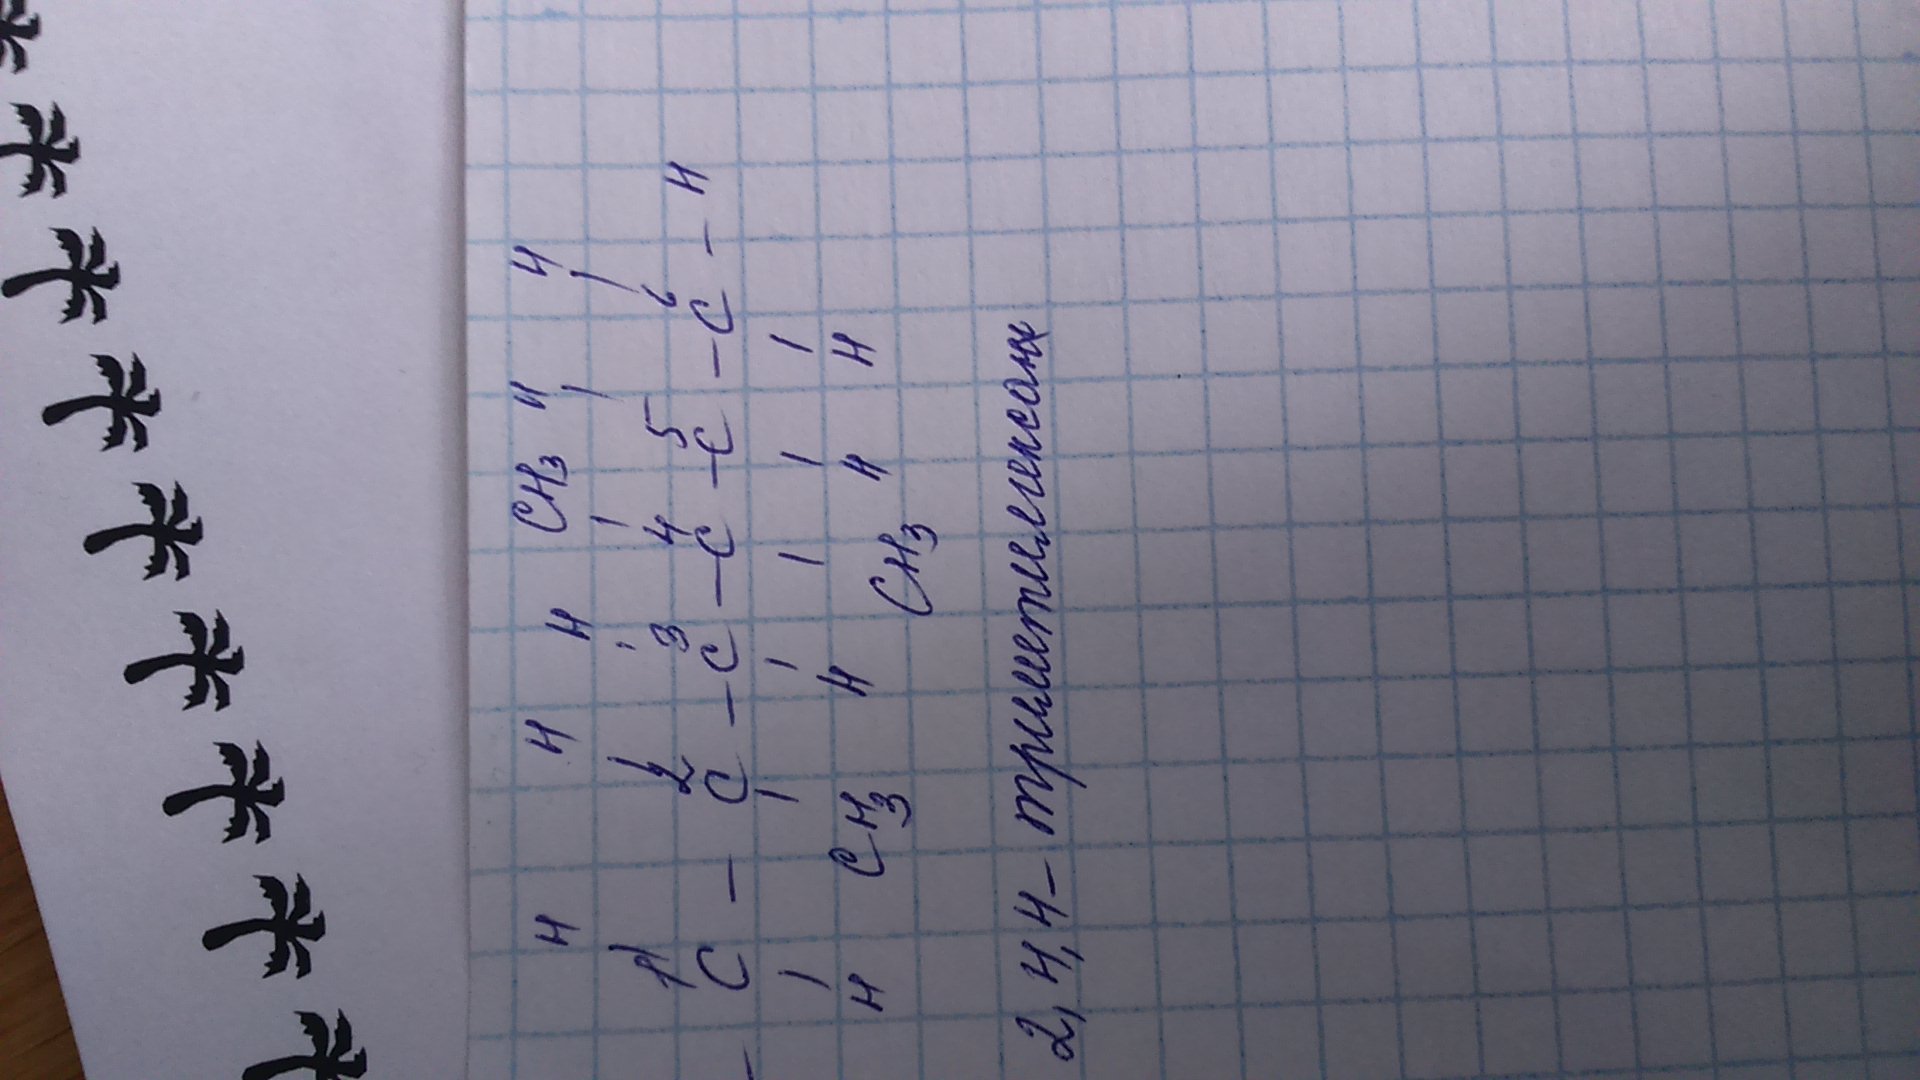 H H H CH3 H H
1 2 3 4 5 6
– C – C – C – C – C – C – H
H CH3 H CH3 H H
2,4,4- триметилгексан